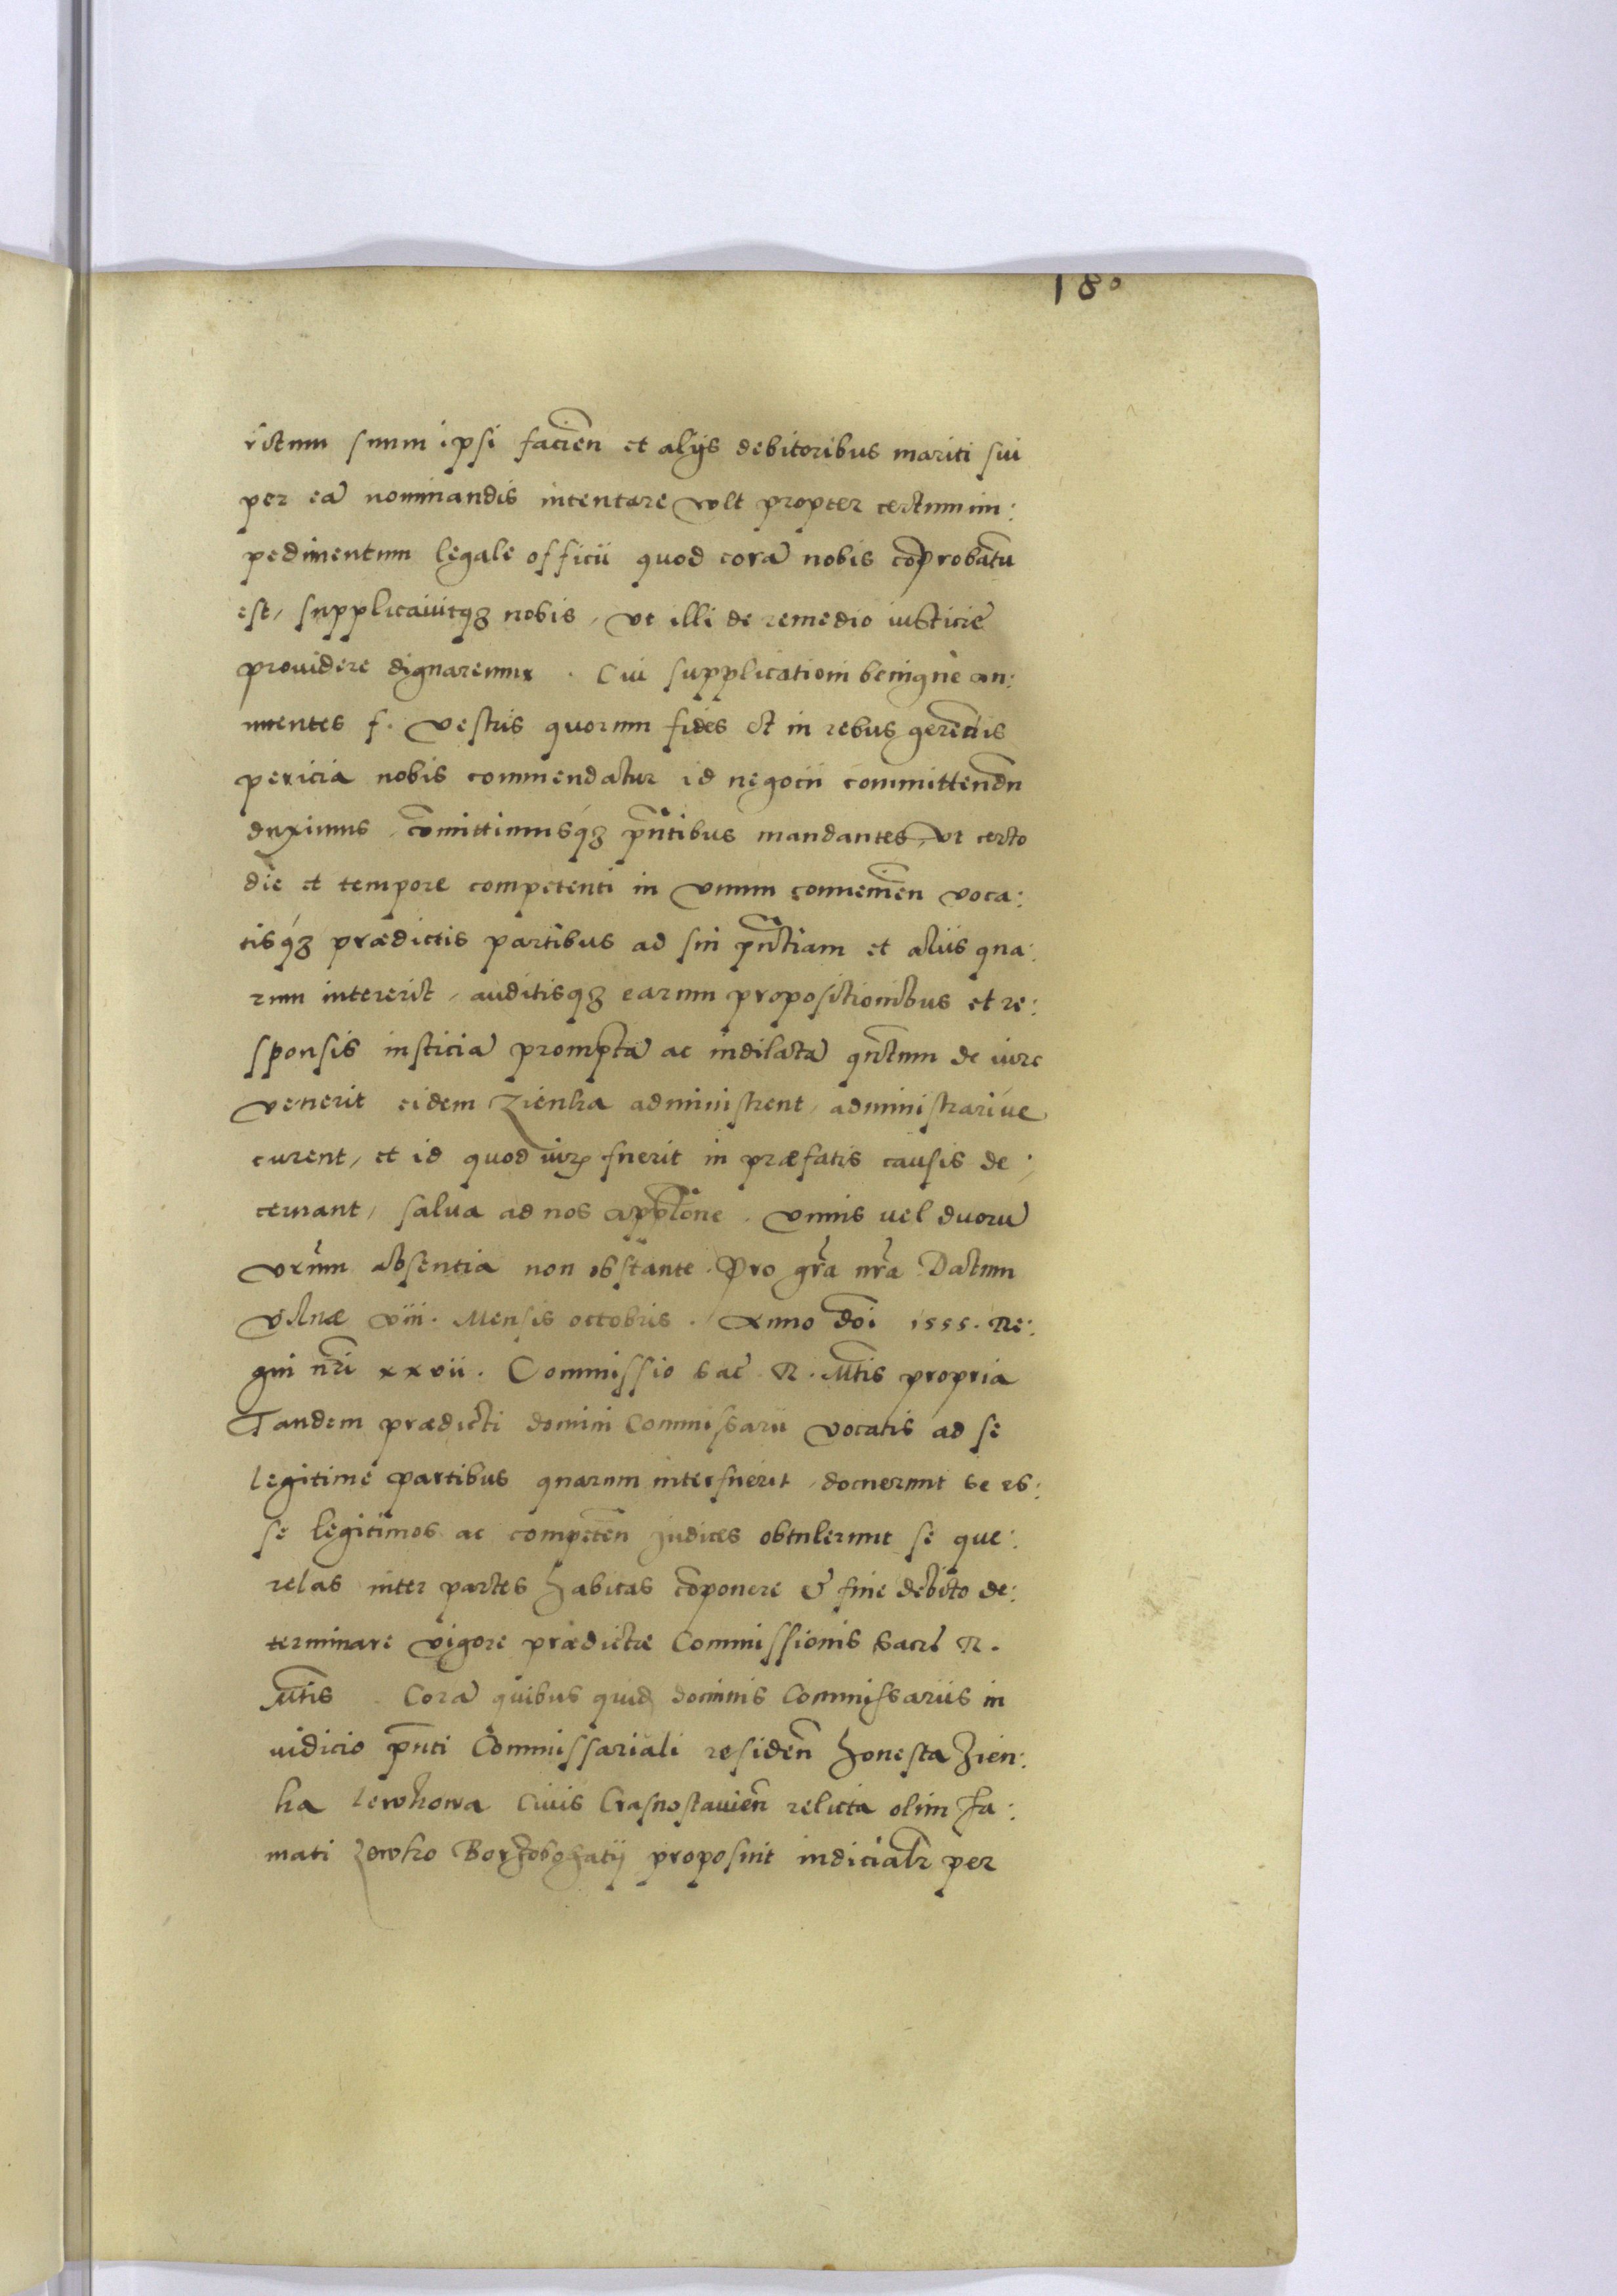 180
ritum suum ipsi facien̄ et alijs debitoribus mariti sui
per eā nominandis intentare vult propter certum im:
pedimentum legale officii quod corā nobis cōprobatū
est, supplicauitq₃ nobis, vt illi de remedio iusticie
prouidere dignaremur. Cui supplicationi benigne an:
nuentes f. vestris quorum fides et in rebus gerendis
pericia nobis commendatur id negocii committendū
duximus, cōmittimusq₃ pn̄tibus mandantes, vt certo
die et tempore competenti in vnum conuenien̄ voca:
tisq₃ prædictis partibus ad sui pn̄tiam et aliis qua:
rum intererit, auditisq₃ earum propositionibus et re:
sponsis iusticiā promptā ac indilatā qn̄tum de iure
venerit eidem Zienka administrent, administrariue
curent, et id quod iuris fuerit in præfatis causis de:
cernant, salua ad nos appl̄one. vnius vel duorū
vr̄um absentia non obstante. Pro gr̄a nr̄a Datum
Vilnæ viii. Mensis octobris. Anno doī 1555. Re:
gni nr̄i xxvii. Commissio Sac R. Mt̄is propria
Tandem prædicti domini Commissarii vocatis ad se
legitime partibus quarum interfuerit, docuerunt se es:
se legitimos ac competen̄ judices obtulerunt se que:
relas inter partes habitas cōponere & fine debito de:
terminare vigore prædictæ Commissionis Sacræ R.
Mt̄is. Corā quibus quid₃ dominis Commissariis in
iudicio pn̄ti Commissariali residen̄ honesta Zien:
ka lewkowa Ciuis Crasnostauien̄ relicta olim Fa:
mati Lewko Borzobohatij proposuit iudicialr̄ per